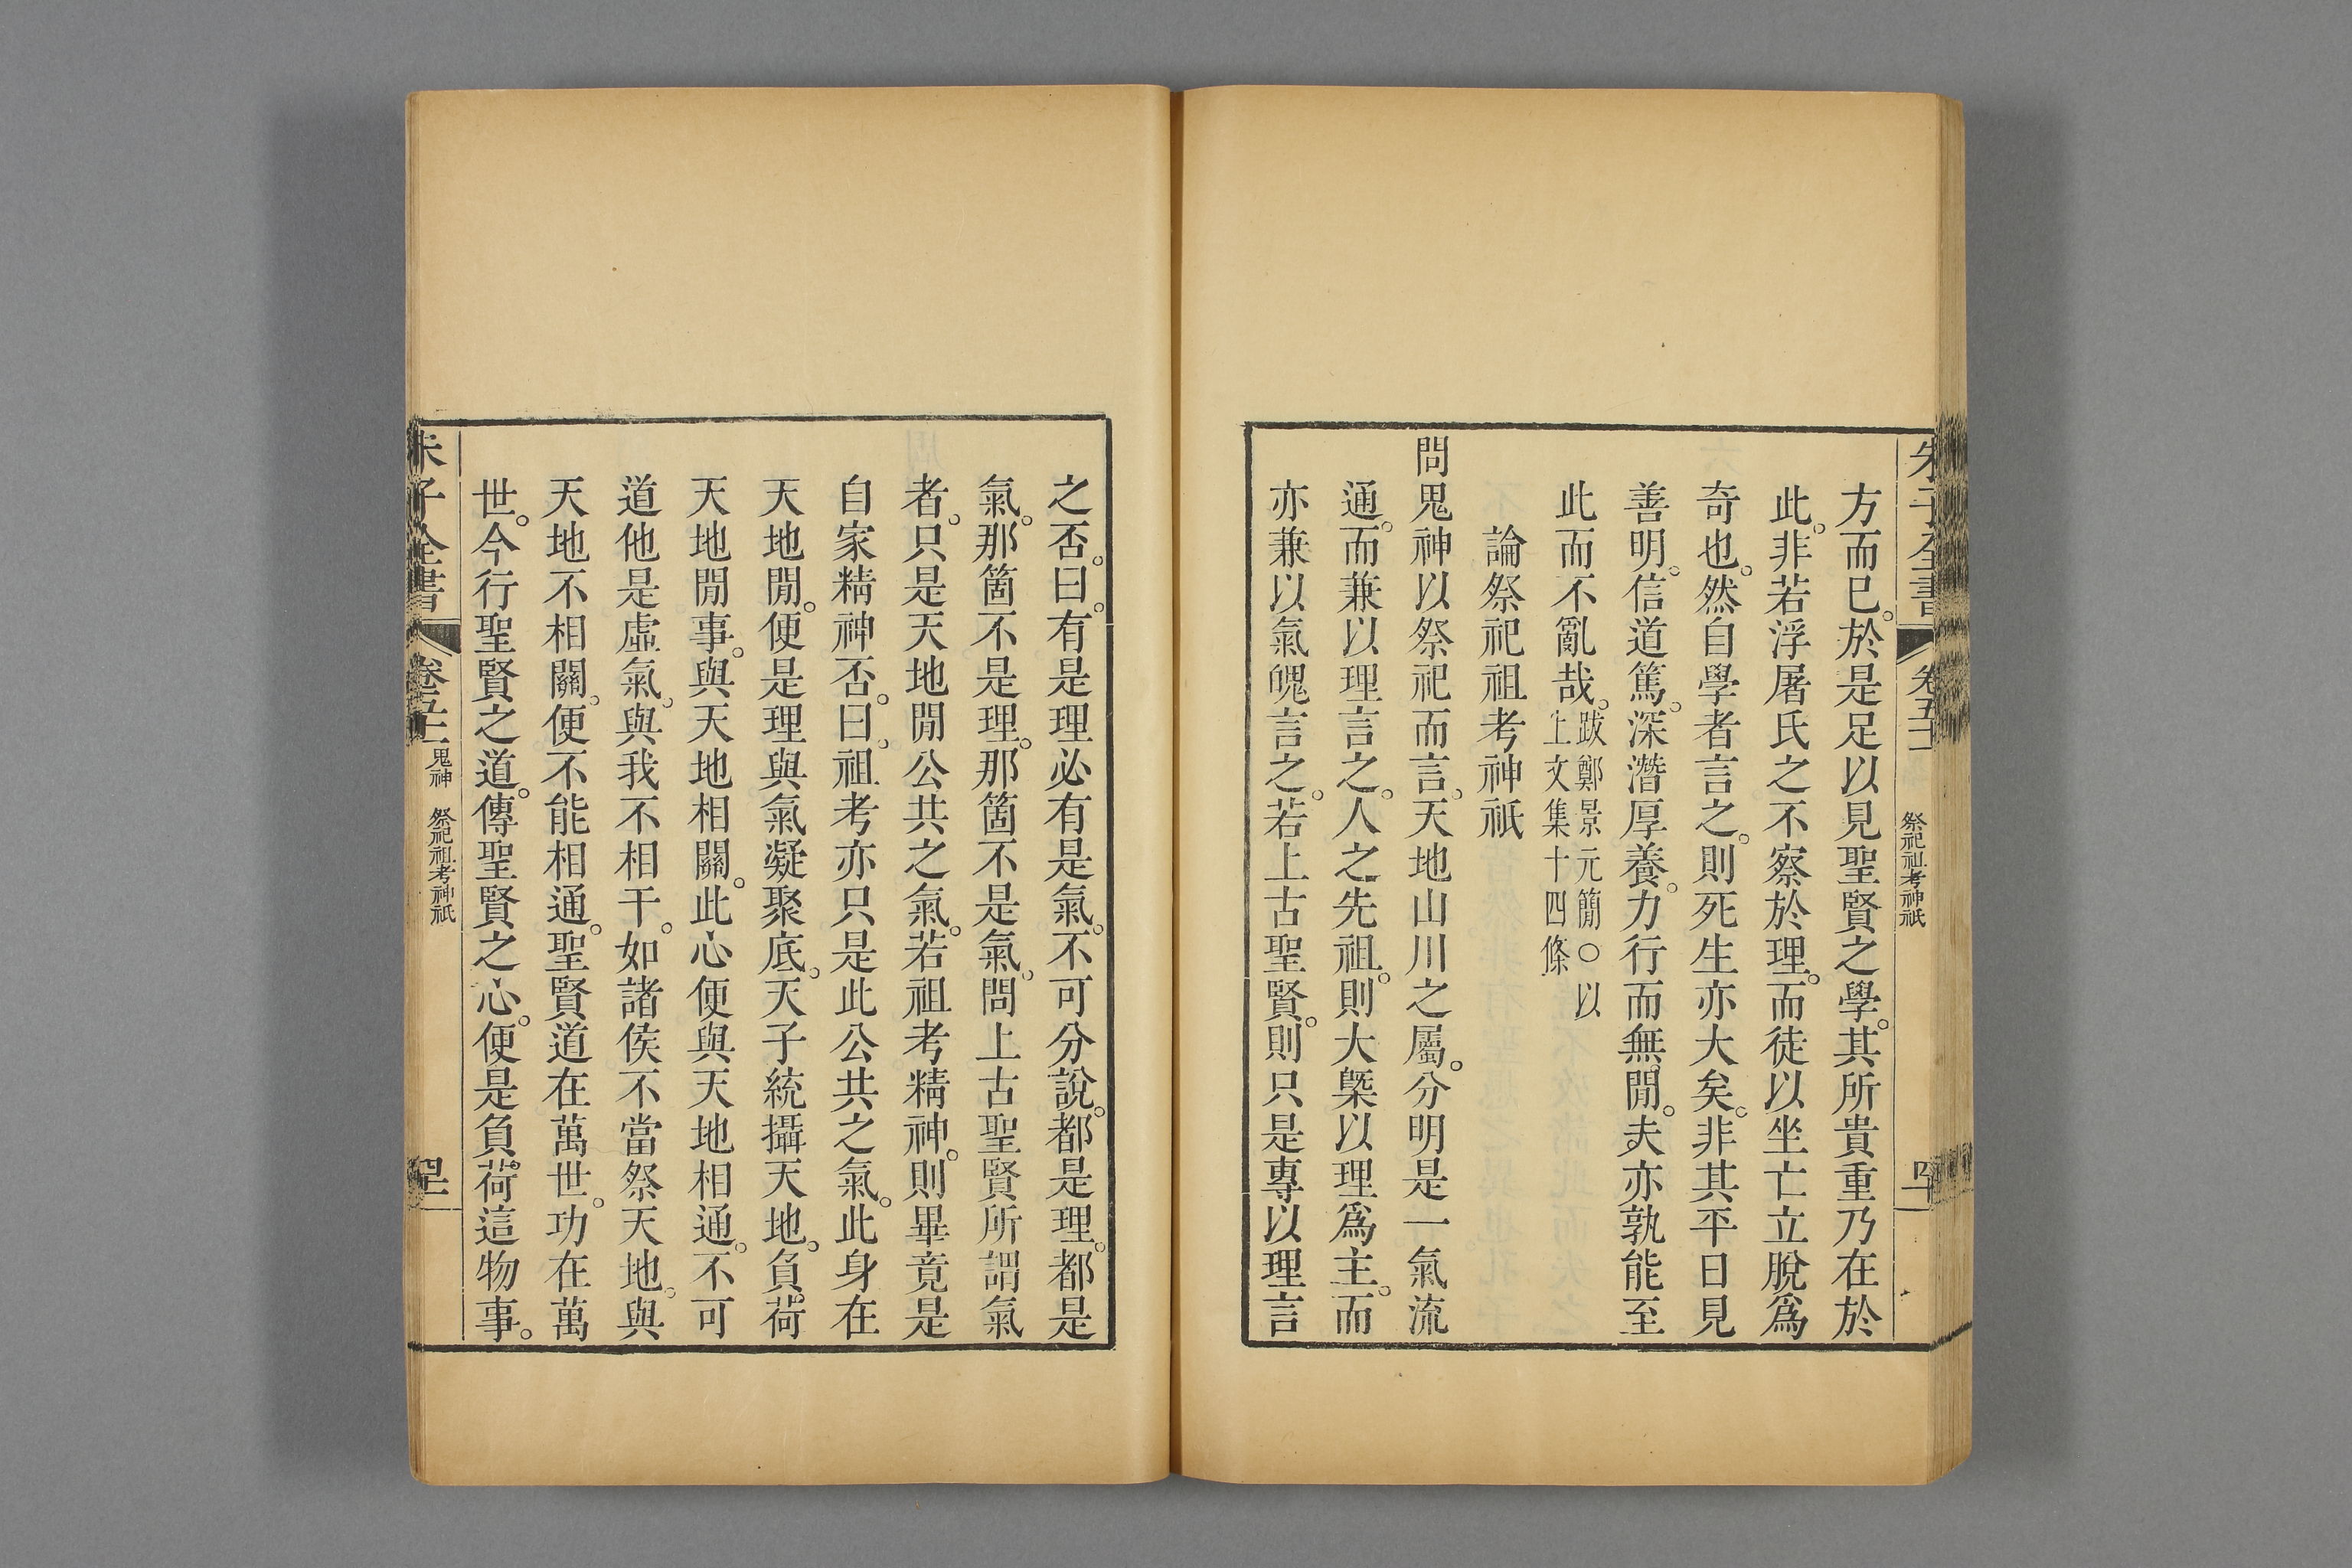 方而已。於是足以見聖賢之學。其所貴重乃在於
此。非若浮屠氏之不察於理。而徒以坐亡立脫爲
奇也。然自學者言之。則死生亦大矣。非其平日見
善明。信道篤。深潛厚養。力行而無閒。夫亦孰能至
此而不亂哉。跋鄭景元簡○以上文集十四條
論祭祀祖考神祇
問鬼神以祭祀而言。天地山川之屬。分明是一氣流
通。而兼以理言之。人之先祖。則大槩以理爲主。而
亦兼以氣魄言之。若上古聖賢。則只是專以理言
祭祀祖考神祇
之否。曰。有是理必有是氣。不可分說。都是理。都是
氣。那箇不是理。那箇不是氣。問上古聖賢所謂氣
者。只是天地閒公共之氣。若祖考精神。則畢竟是
自家精神否。曰。祖考亦只是此公共之氣。此身在
天地閒。便是理與氣凝聚底。天子統攝天地。負荷
天地閒事。與天地相關。此心便與天地相通。不可
道他是虛氣。與我不相干。如諸侯不當祭天地。與
天地不相關。便不能相通。聖賢道在萬世。功在萬
世。今行聖賢之道。傳聖賢之心。便是負荷這物事。
朱子全書
鬼神 祭祀祖考神祇